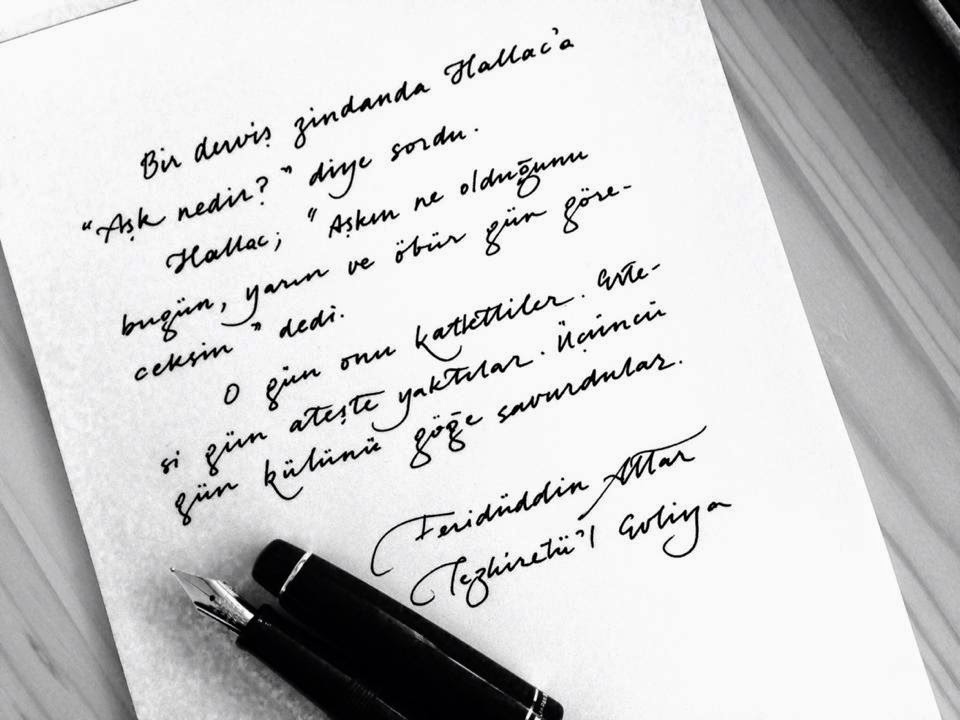 Bir derviş zindanda Hallac'a
"Aşk nedir?" diye sordu.
Hallac; "Aşkın ne olduğunu
bugün, yarın ve öbür gün göre-
ceksin" dedi.
O gün onu katlettiler. Erte-
si gün ateşte yaktılar. Üçüncü
gün külünü göğe savurdular.
Feridüddin Attar
Tezkiretü'l Evliya